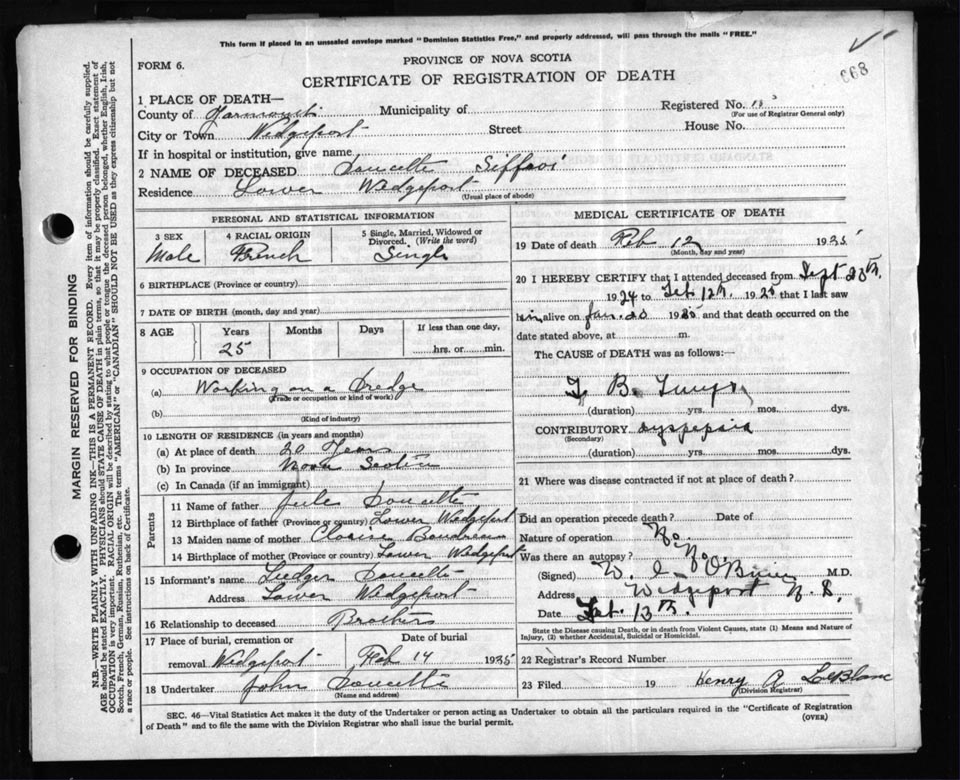 This form if placed in an unsealed envelope marked "Dominion Statistics Free," and properly addressed, will pass through the mails "FREE."
668
FORM 6.
PROVINCE OF NOVA SCOTIA
CERTIFICATE OF REGISTRATION OF DEATH
MARGIN RESERVED FOR BINDING
N.B.—WRITE PLAINLY WITH UNFADING INK—THIS IS A PERMANENT RECORD. Every item of information should be carefully supplied.
AGE should be stated EXACTLY. PHYSICIANS should STATE CAUSE OF DEATH in plain terms, so that it may be properly classified. Exact statement of
OCCUPATION is very important. RACIAL ORIGIN will be described by stating to what people or tongue the deceased person belonged, whether English, Irish,
Scotch, French, German, Russian, Ruthenian, etc. The terms "AMERICAN" or "CANADIAN" SHOULD NOT BE USED as they express citizenship but not
a race or people. See instructions on back of Certificate.
1 PLACE OF DEATH—
County of Yarmouth Municipality of Registered No.
(For use of Registrar General only)
City or Town Wedgeport Street House No.
If in hospital or institution, give name
2 NAME OF DECEASED Doucette
Residence Lower Wedgeport
(Usual place of abode)
PERSONAL AND STATISTICAL INFORMATION
3 SEX
Male
4 RACIAL ORIGIN
French
5 Single, Married, Widowed or
Divorced. (Write the word)
Single
6 BIRTHPLACE (Province or country)
7 DATE OF BIRTH (month, day and year)
8 AGE Years Months Days If less than one day,
25 hrs. or min.
9 OCCUPATION OF DECEASED
(a) Working on a Dredge
(Trade or occupation or kind of work)
(b)
(Kind of industry)
10 LENGTH OF RESIDENCE (in years and months)
(a) At place of death 20 Years
(b) In province Nova Scotia
(c) In Canada (if an immigrant)
Parents
11 Name of father Jule Doucette
12 Birthplace of father (Province or country) Lower Wedgeport
13 Maiden name of mother Boudreau
14 Birthplace of mother (Province or country) Lower Wedgeport
15 Informant's name Ludger Doucette
Address Lower Wedgeport
16 Relationship to deceased Brothers
17 Place of burial, cremation or Date of burial
removal Wedgeport Feb 14 1935
18 Undertaker John Doucette
(Name and address)
MEDICAL CERTIFICATE OF DEATH
19 Date of death Feb 12 1935
(Month, day and year)
20 I HEREBY CERTIFY that I attended deceased from Sept 23th.
1934 to Feb. 12th. 1935 that I last saw
him alive on Jan. 20 1935 and that death occurred on the
date stated above, at m.
The CAUSE of DEATH was as follows:
T. B. Lungs
(duration) yrs. mos. dys.
CONTRIBUTORY dyspepsia
(Secondary)
(duration) yrs. mos. dys.
21 Where was disease contracted if not at place of death?
Did an operation precede death? Date of
Nature of operation No.
Was there an autopsy? No
(Signed) W. O'Brien M.D.
Address Wedgeport N. S.
Date Feb. 13th.
State the Disease causing Death, or in death from Violent Causes, state (1) Means and Nature of
Injury, (2) whether Accidental, Suicidal or Homicidal.
22 Registrar's Record Number
23 Filed 19 Henry A LeBlanc
(Division Registrar)
SEC. 46—Vital Statistics Act makes it the duty of the Undertaker or person acting as Undertaker to obtain all the particulars required in the "Certificate of Registration
of Death" and to file the same with the Division Registrar who shall issue the burial permit.
(OVER)